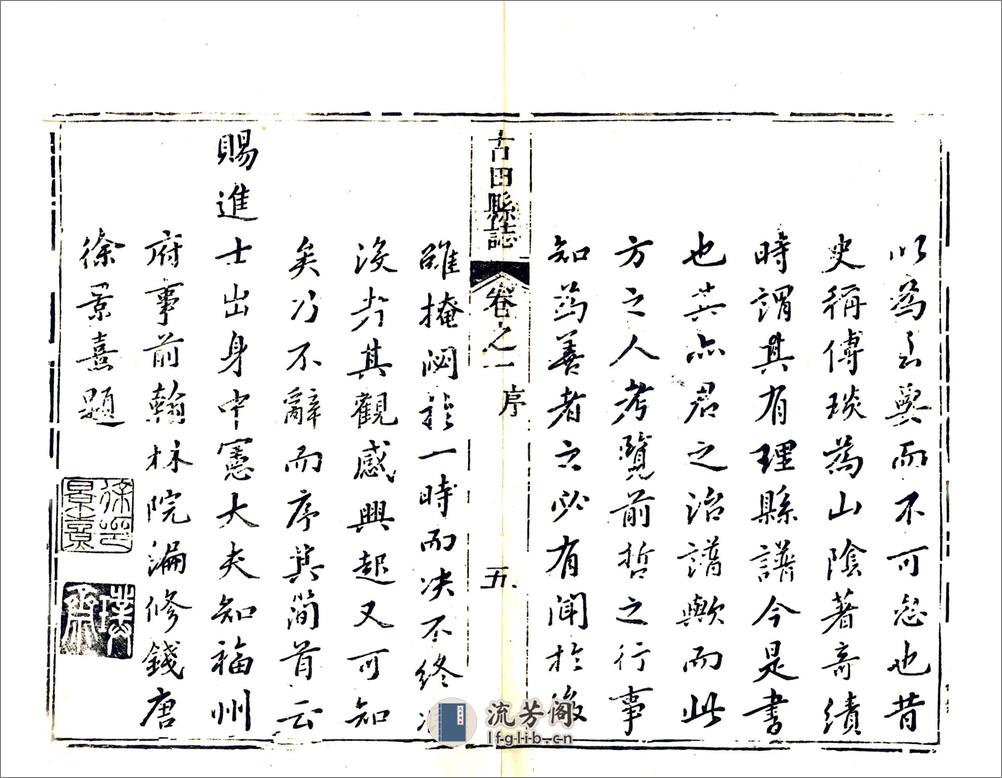 以為玄興而不可忽也昔
史稱傅琰為山陰著奇績
時謂其有理縣譜今是書
也其亦君之治譜歟而此
方之人考覽前哲之行事
知為善者之必有聞於後
古田縣誌
卷之一 序
五
雖掩閟於一時而决不終
没於其觀感興起又可知
矣乃不辭而序其簡首云
賜進士出身中憲大夫知福州
府事前翰林院編修錢唐
徐景熹題
徐印景熹
齋
流芳阁
lfglib.cn